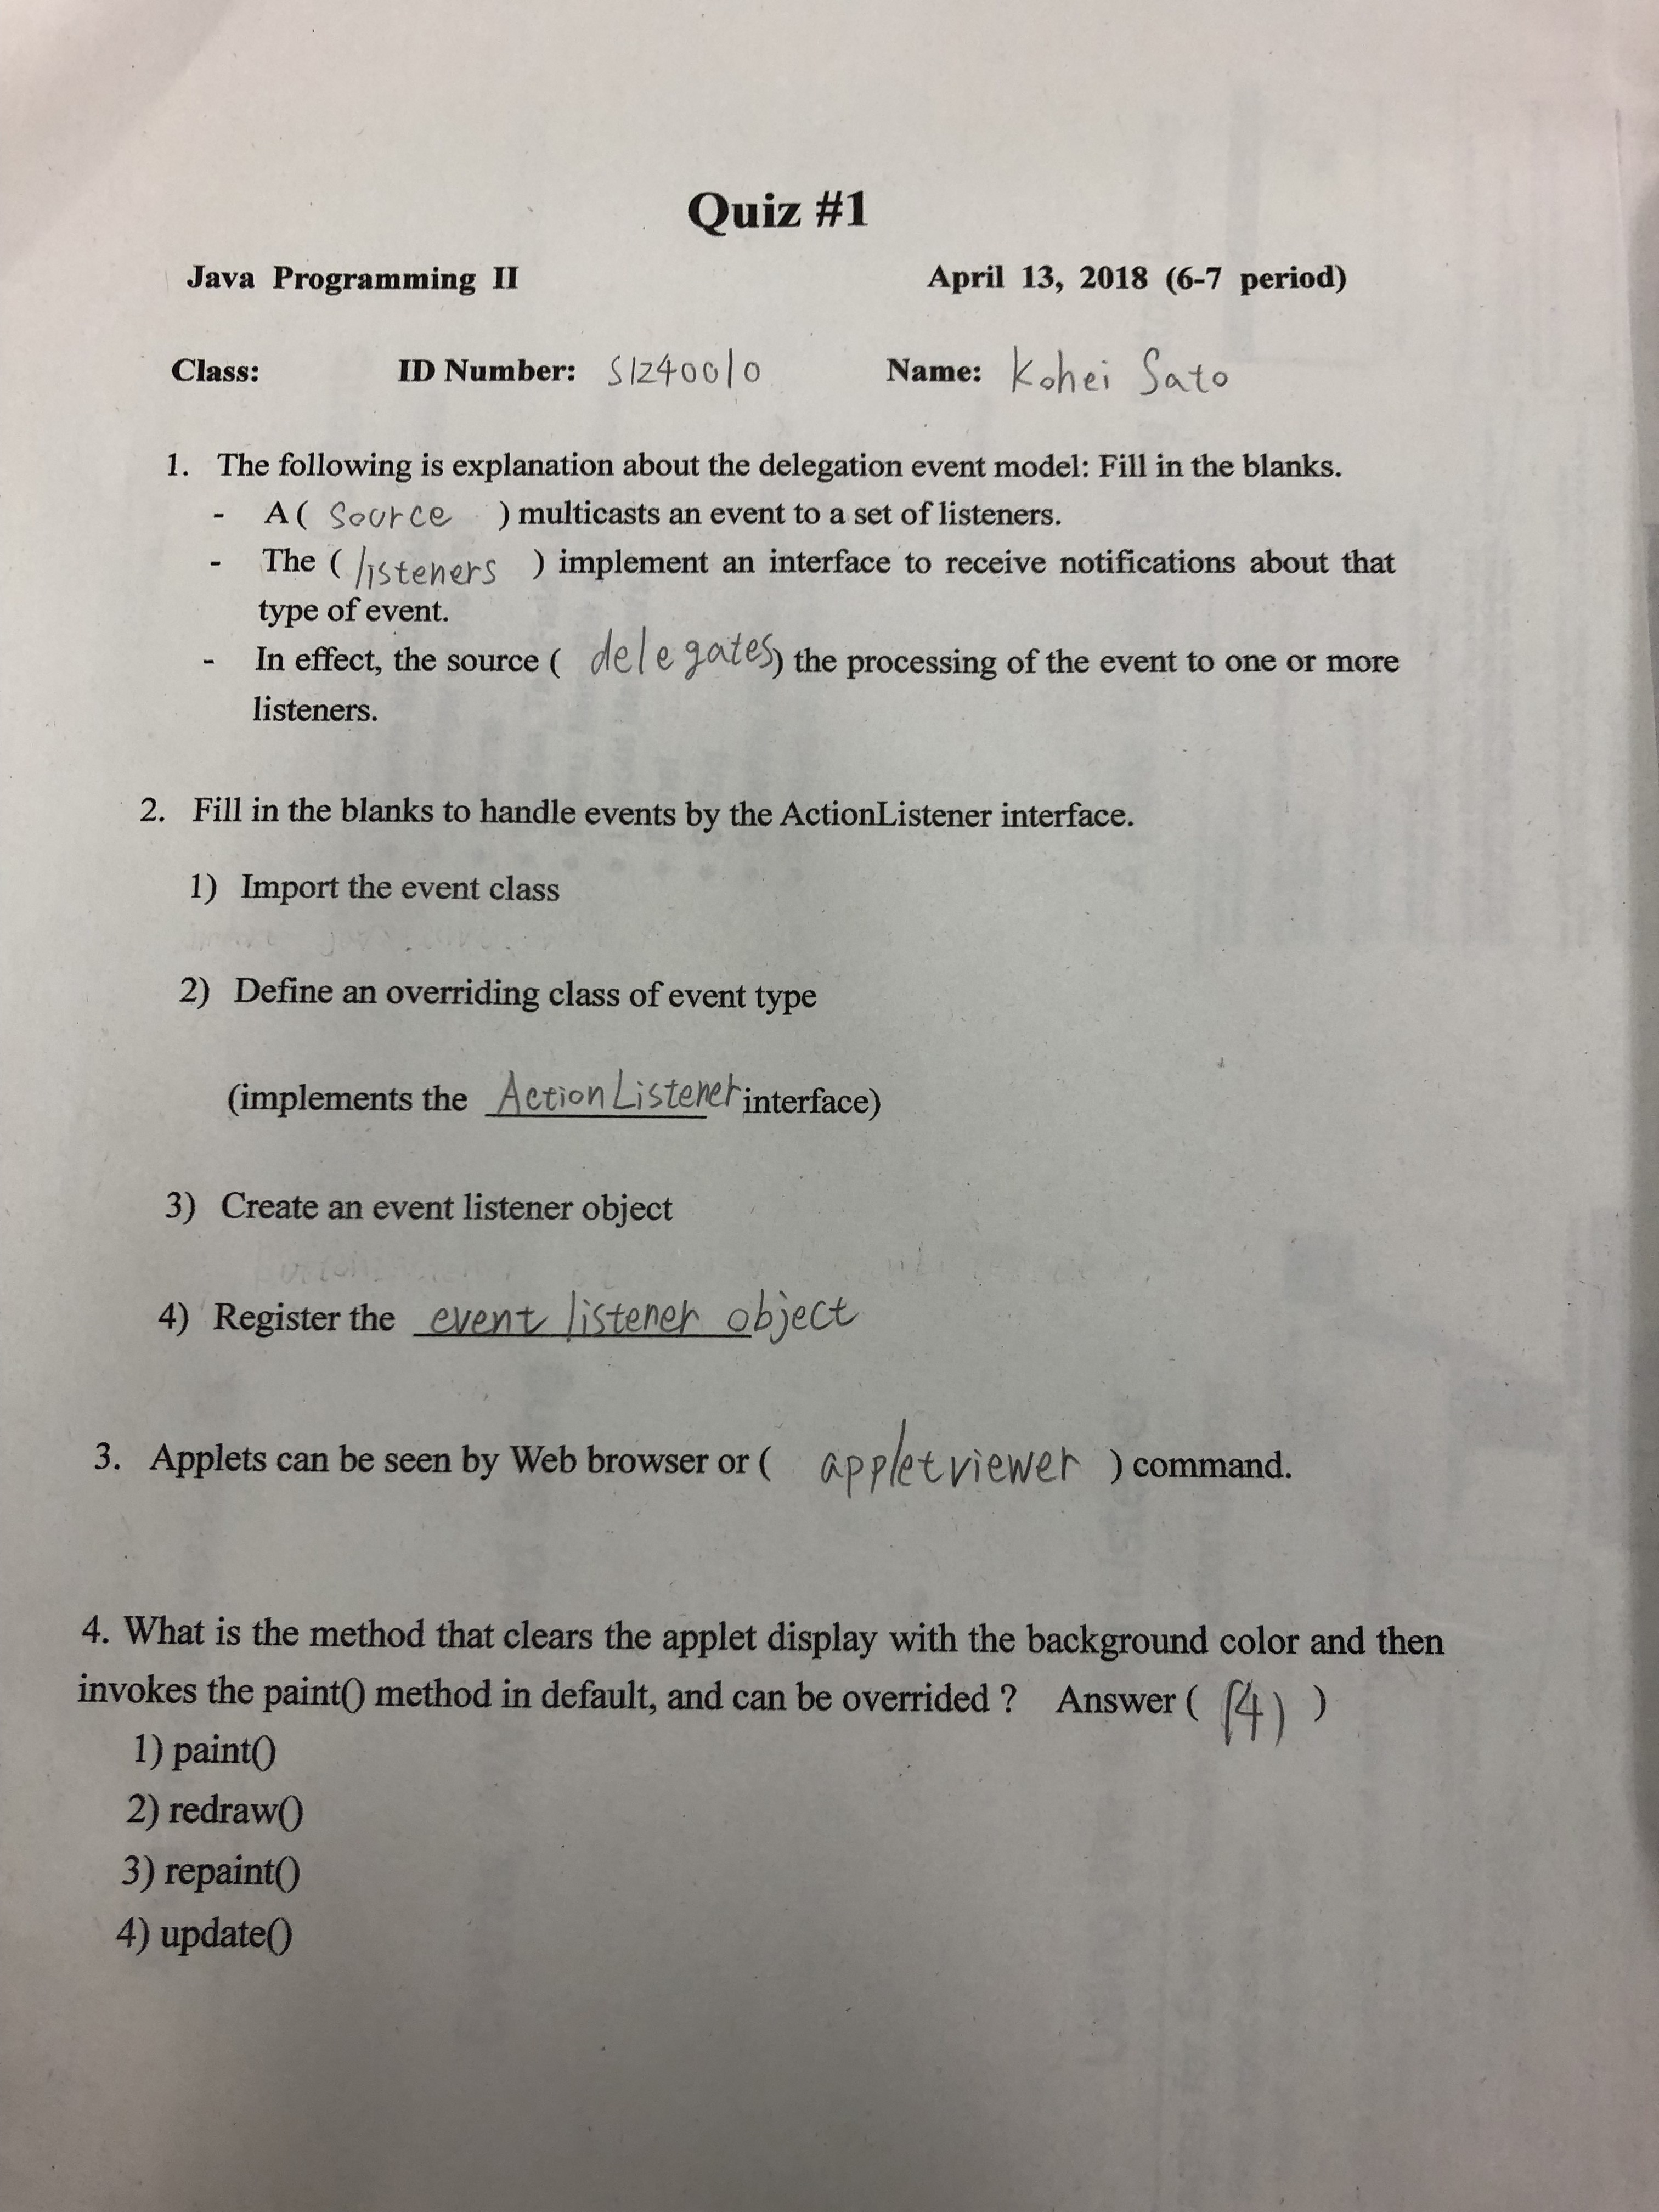 Quiz #1
Java Programming II April 13, 2018 (6-7 period)
Class: ID Number: S1240010 Name: Kohei Sato
1. The following is explanation about the delegation event model: Fill in the blanks.
- A ( Source ) multicasts an event to a set of listeners.
- The ( listeners ) implement an interface to receive notifications about that
type of event.
- In effect, the source ( delegates ) the processing of the event to one or more
listeners.
2. Fill in the blanks to handle events by the ActionListener interface.
1) Import the event class
2) Define an overriding class of event type
(implements the ActionListener interface)
3) Create an event listener object
4) Register the event listener object
3. Applets can be seen by Web browser or ( appletviewer ) command.
4. What is the method that clears the applet display with the background color and then
invokes the paint() method in default, and can be overrided ? Answer ( (4) )
1) paint()
2) redraw()
3) repaint()
4) update()